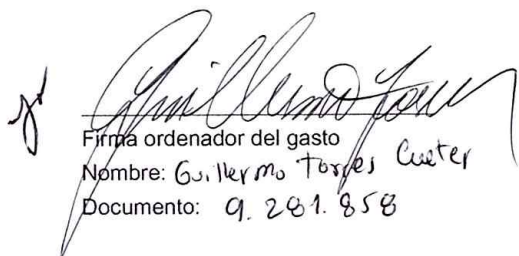 Guillermo Torres
Firma ordenador del gasto
Nombre: Guillermo Torres Cueter
Documento: 9.281.858